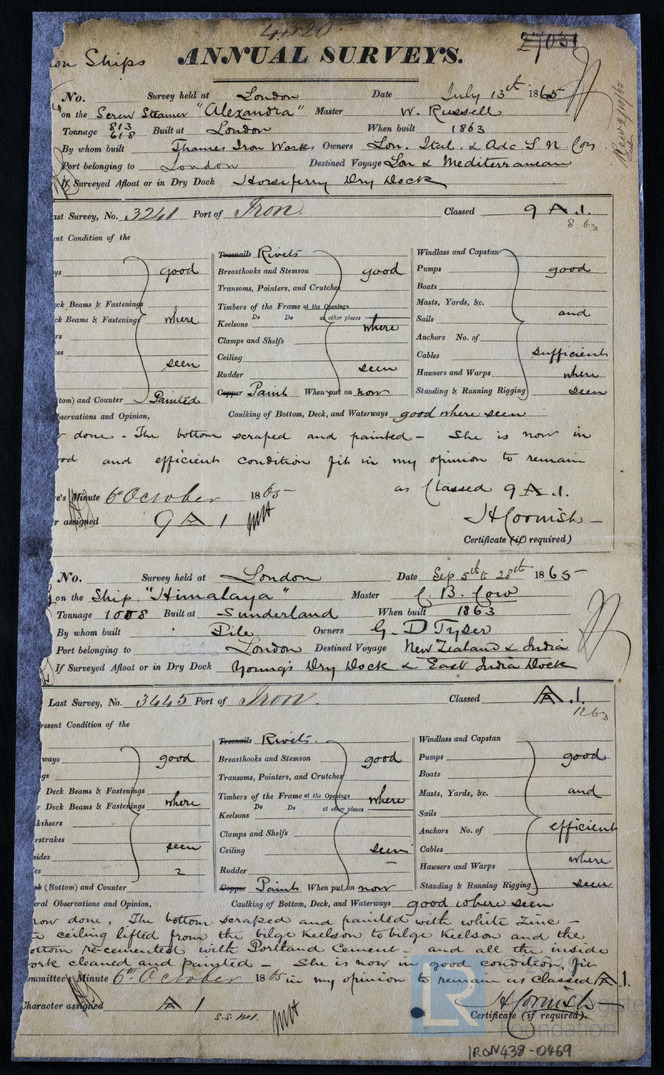 4520
on Ships
ANNUAL SURVEYS.
No. Survey held at London Date July 13th 1865
on the Screw Steamer "Alexandra" Master W. Russell
Tonnage 813 618 Built at London When built 1863
By whom built Thames Iron Works Owners Lon. Ital. & Adc. S. N. Coy
Port belonging to London Destined Voyage Lon & Mediterranean
If Surveyed Afloat or in Dry Dock Horseferry Dry Dock
ast Survey, No. 3241 Port of Iron. Classed 9 A .1.
8.63
ent Condition of the
Treenails Rivets
Windlass and Capstan
ys good
Breasthooks and Stemson good
Pumps good
Transoms, Pointers, and Crutches
Boats
ck Beams & Fastenings
Timbers of the Frame at the Openings
Masts, Yards, &c.
Do Do at other places
ck Beams & Fastenings where
Keelsons where
Sails and
Clamps and Shelfs
Anchors No. of
Ceiling
Cables sufficient
seen
Rudder seen
Hawsers and Warps where
tom) and Counter Painted
Copper Paint When put on now
Standing & Running Rigging seen
bservations and Opinion, Caulking of Bottom, Deck, and Waterways good where seen
done - The bottom scraped and painted - She is now in
and efficient condition fit in my opinion to remain
as Classed 9 A .1.
e's Minute 6th October 1865
r assigned 9 A 1
H Cornish
Certificate (if required)
No. Survey held at London Date Sep 5th & 20th 1865
on the Ship "Himalaya" Master C B. Cow
Tonnage 1008 Built at Sunderland When built 1863
By whom built Pile Owners G. D Tyser
Port belonging to London Destined Voyage New Zealand & India
If Surveyed Afloat or in Dry Dock Young's Dry Dock & East India Dock
Last Survey, No. 3445 Port of Iron. Classed A .1.
12 63
resent Condition of the
Treenails Rivets
Windlass and Capstan
ways good
Breasthooks and Stemson good
Pumps good
gs
Transoms, Pointers, and Crutches
Boats
r Deck Beams & Fastenings
Timbers of the Frame at the Openings where
Masts, Yards, &c. and
Do Do at other places
r Deck Beams & Fastenings where
Keelsons
Sails
ksheers
Clamps and Shelfs
Anchors No. of efficient
rstrakes
Ceiling seen
Cables
sides seen
Rudder
Hawsers and Warps where
(Bottom) and Counter
Copper Paint When put on now
Standing & Running Rigging seen
eral Observations and Opinion, Caulking of Bottom, Deck, and Waterways good where seen
now done. The bottom scraped and painted with white Zinc -
ceiling lifted from the bilge Keelson to bilge Keelson and the
ottom recemented with Portland Cement - and all the inside
ork cleaned and painted - She is now in good condition, fit
ommittee's Minute 6th October 1865 in my opinion to remain as Classed A 1.
Character assigned A 1
H Cornish
Certificate (if required).
LR
Foundation
IRON438-0469